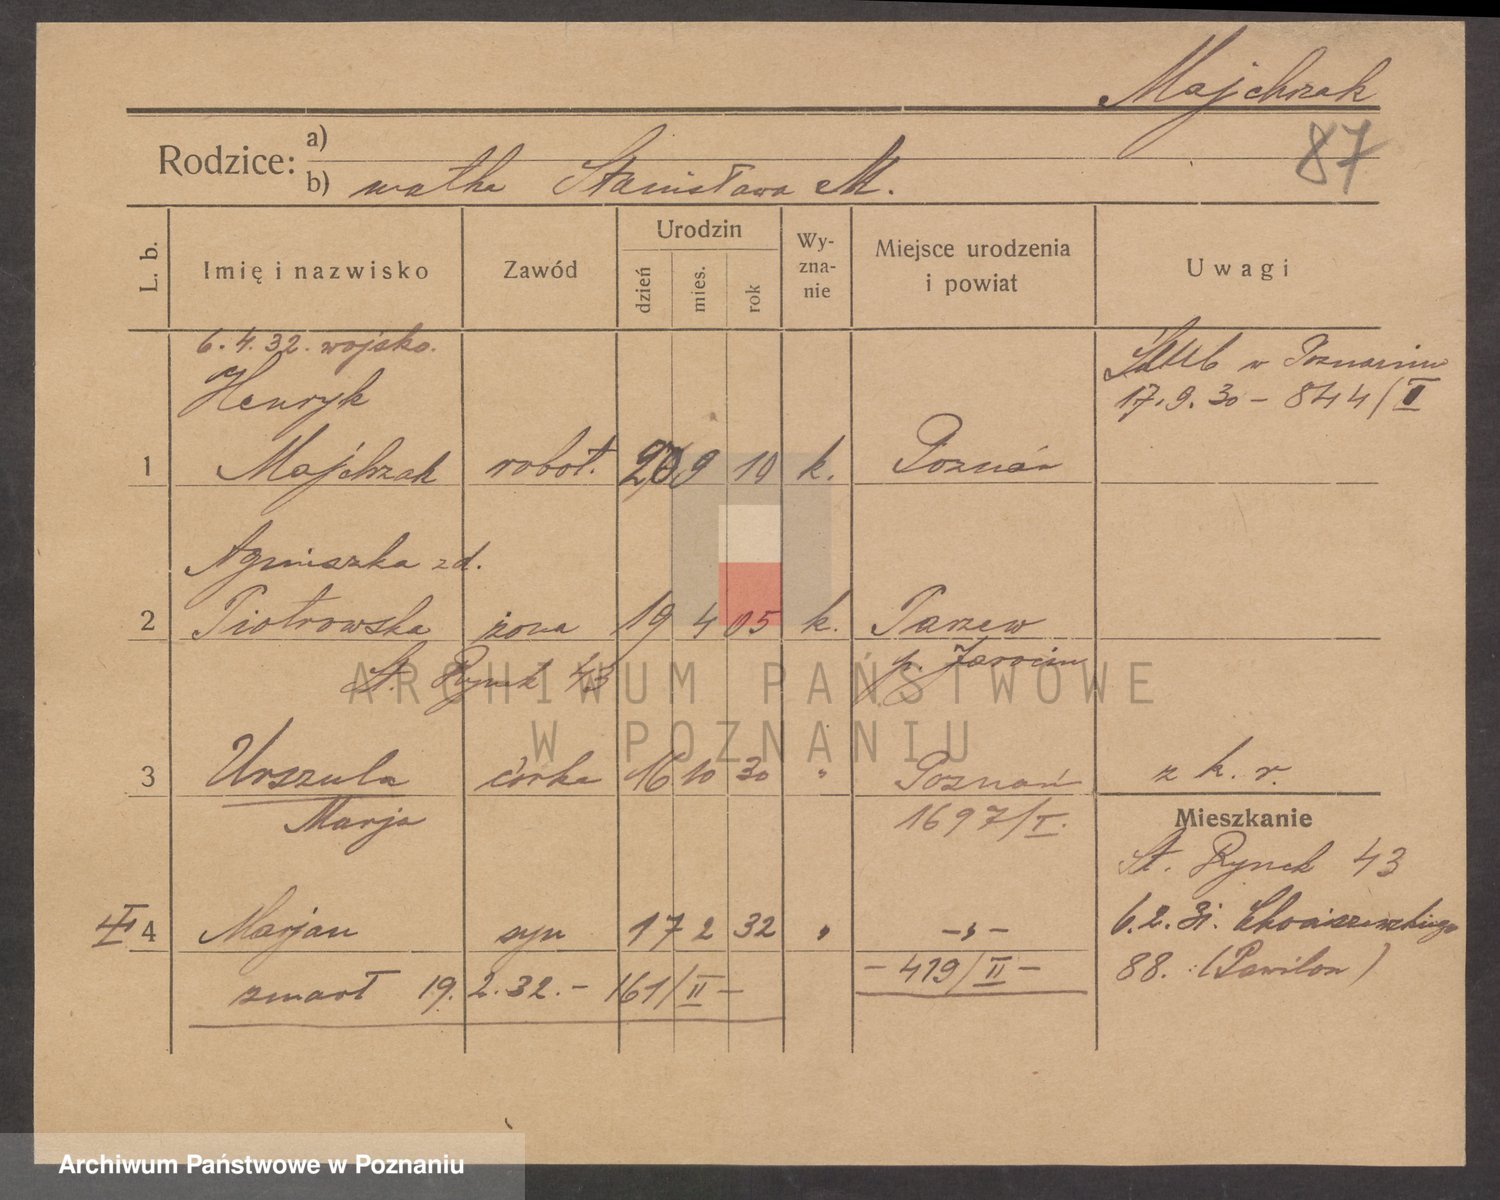 Majchrzak
87
Rodzice: a)
b) matka Stanisława M.
L. b.
Imię i nazwisko
Zawód
Urodzin
dzień
mies.
rok
Wy-
zna-
nie
Miejsce urodzenia
i powiat
Uwagi
6.4.32. wojsko.
Henryk
Ślub w Poznaniu
17.9.30 - 844/II
1 Majchrzak robot. 9 10 k. Poznań
Agnieszka zd.
2 Piotrowska żona 19 4 05 k. Parzew
St. Rynek 43 p. Jarocin
3 Urszula córka 16 10 30 " Poznań z k. r.
Marja 1697/I.
Mieszkanie
St. Rynek 43
4 Marjan syn 17 2 32 " -"-
6.2.31.
- 419/II -
88. (Pawilon)
zmarł 19.2.32. - 161/II -
ARCHIWUM PAŃSTWOWE
W POZNANIU
Archiwum Państwowe w Poznaniu